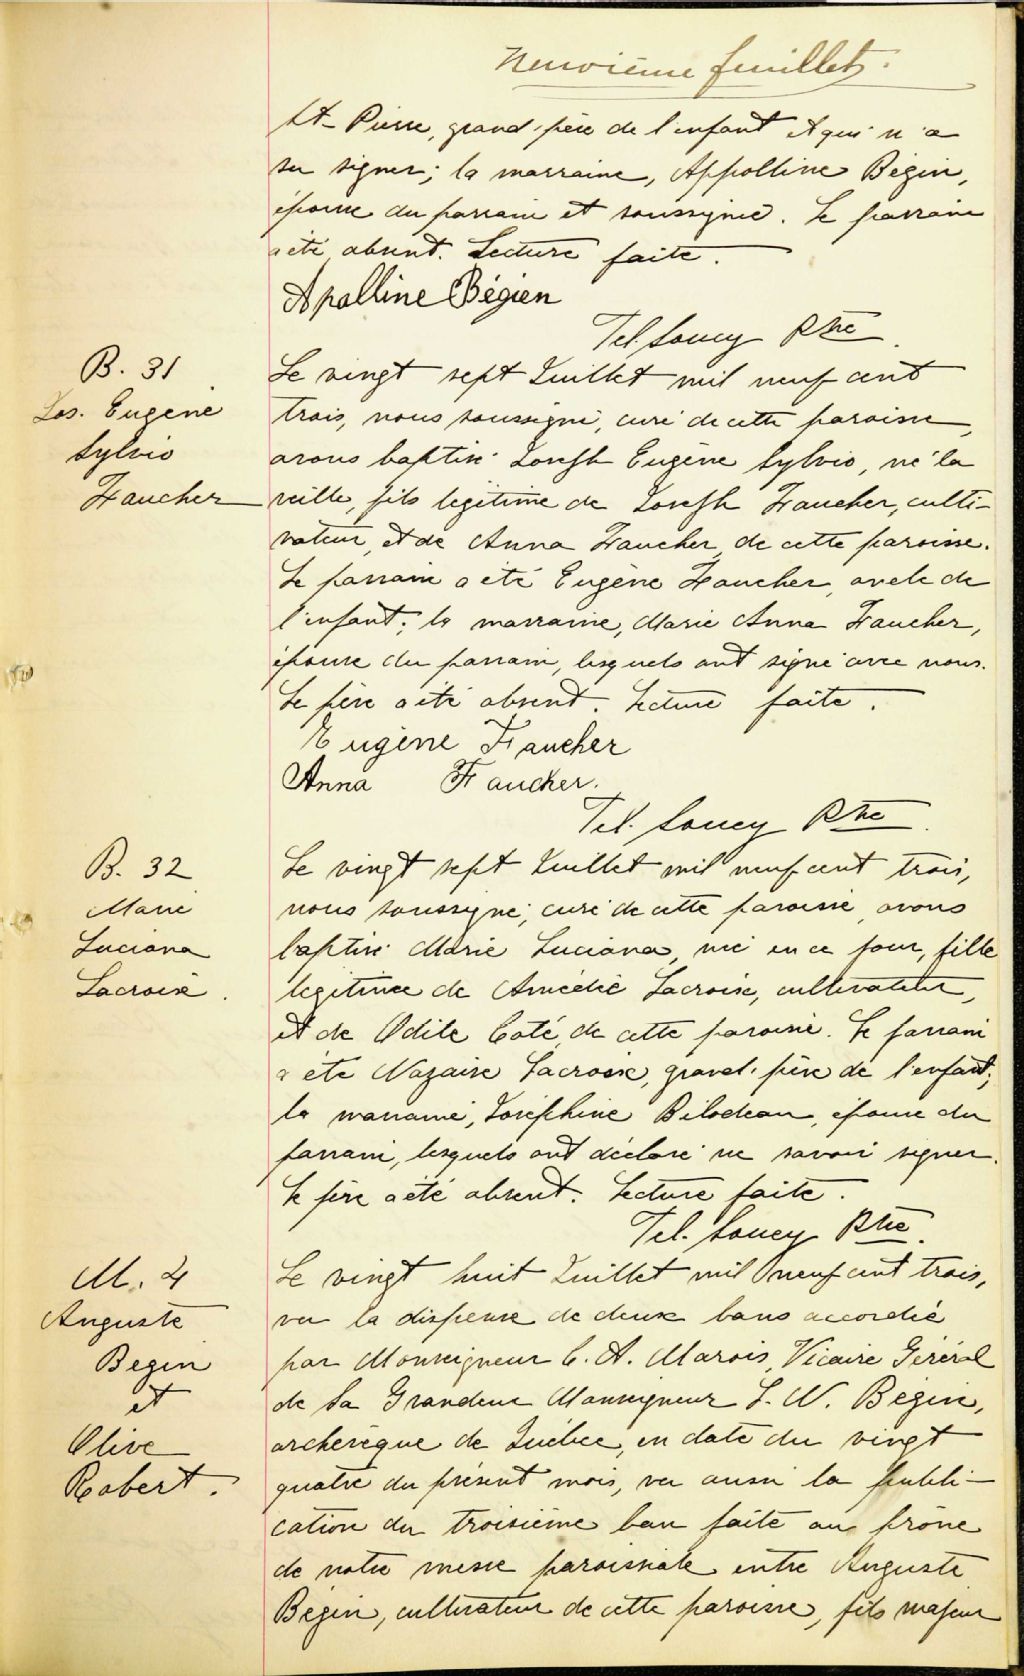 Neuvième feuillet.
St-Pierre, grand'père de l'enfant et qui n'a
su signer; la marraine, Appolline Bégin,
épouse du parrain et soussignée. Le parrain
a été absent. Lecture faite.
Apolline Bégien
Tel. Soucy Ptre
B. 31
Jos. Eugène
Sylvio
Faucher
Le vingt sept Juillet mil neuf cent
trois, nous soussigné, curé de cette paroisse,
avons baptisé Joseph Eugène Sylvio, né la
veille, fils légitime de Joseph Faucher, culti-
vateur, et de Anna Faucher, de cette paroisse.
Le parrain a été Eugène Faucher, oncle de
l'enfant; la marraine, Marie Anna Faucher,
épouse du parrain, lesquels ont signé avec nous.
Le père a été absent. Lecture faite.
Eugène Faucher
Anna Faucher.
Tel. Soucy Ptre
B. 32
Marie
Luciana
Lacroix.
Le vingt sept Juillet mil neuf cent trois,
nous soussigné, curé de cette paroisse, avons
baptisé Marie Luciana, née en ce jour, fille
légitime de Amédée Lacroix, cultivateur,
et de Odile Coté, de cette paroisse. Le parrain
a été Nazaire Lacroix, grand'père de l'enfant;
la marraine, Joséphine Bilodeau, épouse du
parrain, lesquels ont déclaré ne savoir signer.
Le père a été absent. Lecture faite.
Tel. Soucy Ptre.
M. 4
Auguste
Begin
et
Olive
Robert.
Le vingt huit Juillet mil neuf cent trois,
vu la dispense de deux bans accordée
par Monseigneur C. A. Marois, Vicaire Général
de Sa Grandeur Monseigneur L. N. Bégin,
archevêque de Québec, en date du vingt
quatre du présent mois, vu aussi la publi-
cation du troisième ban faite au prône
de notre messe paroissiale entre Auguste
Bégin, cultivateur de cette paroisse, fils majeur